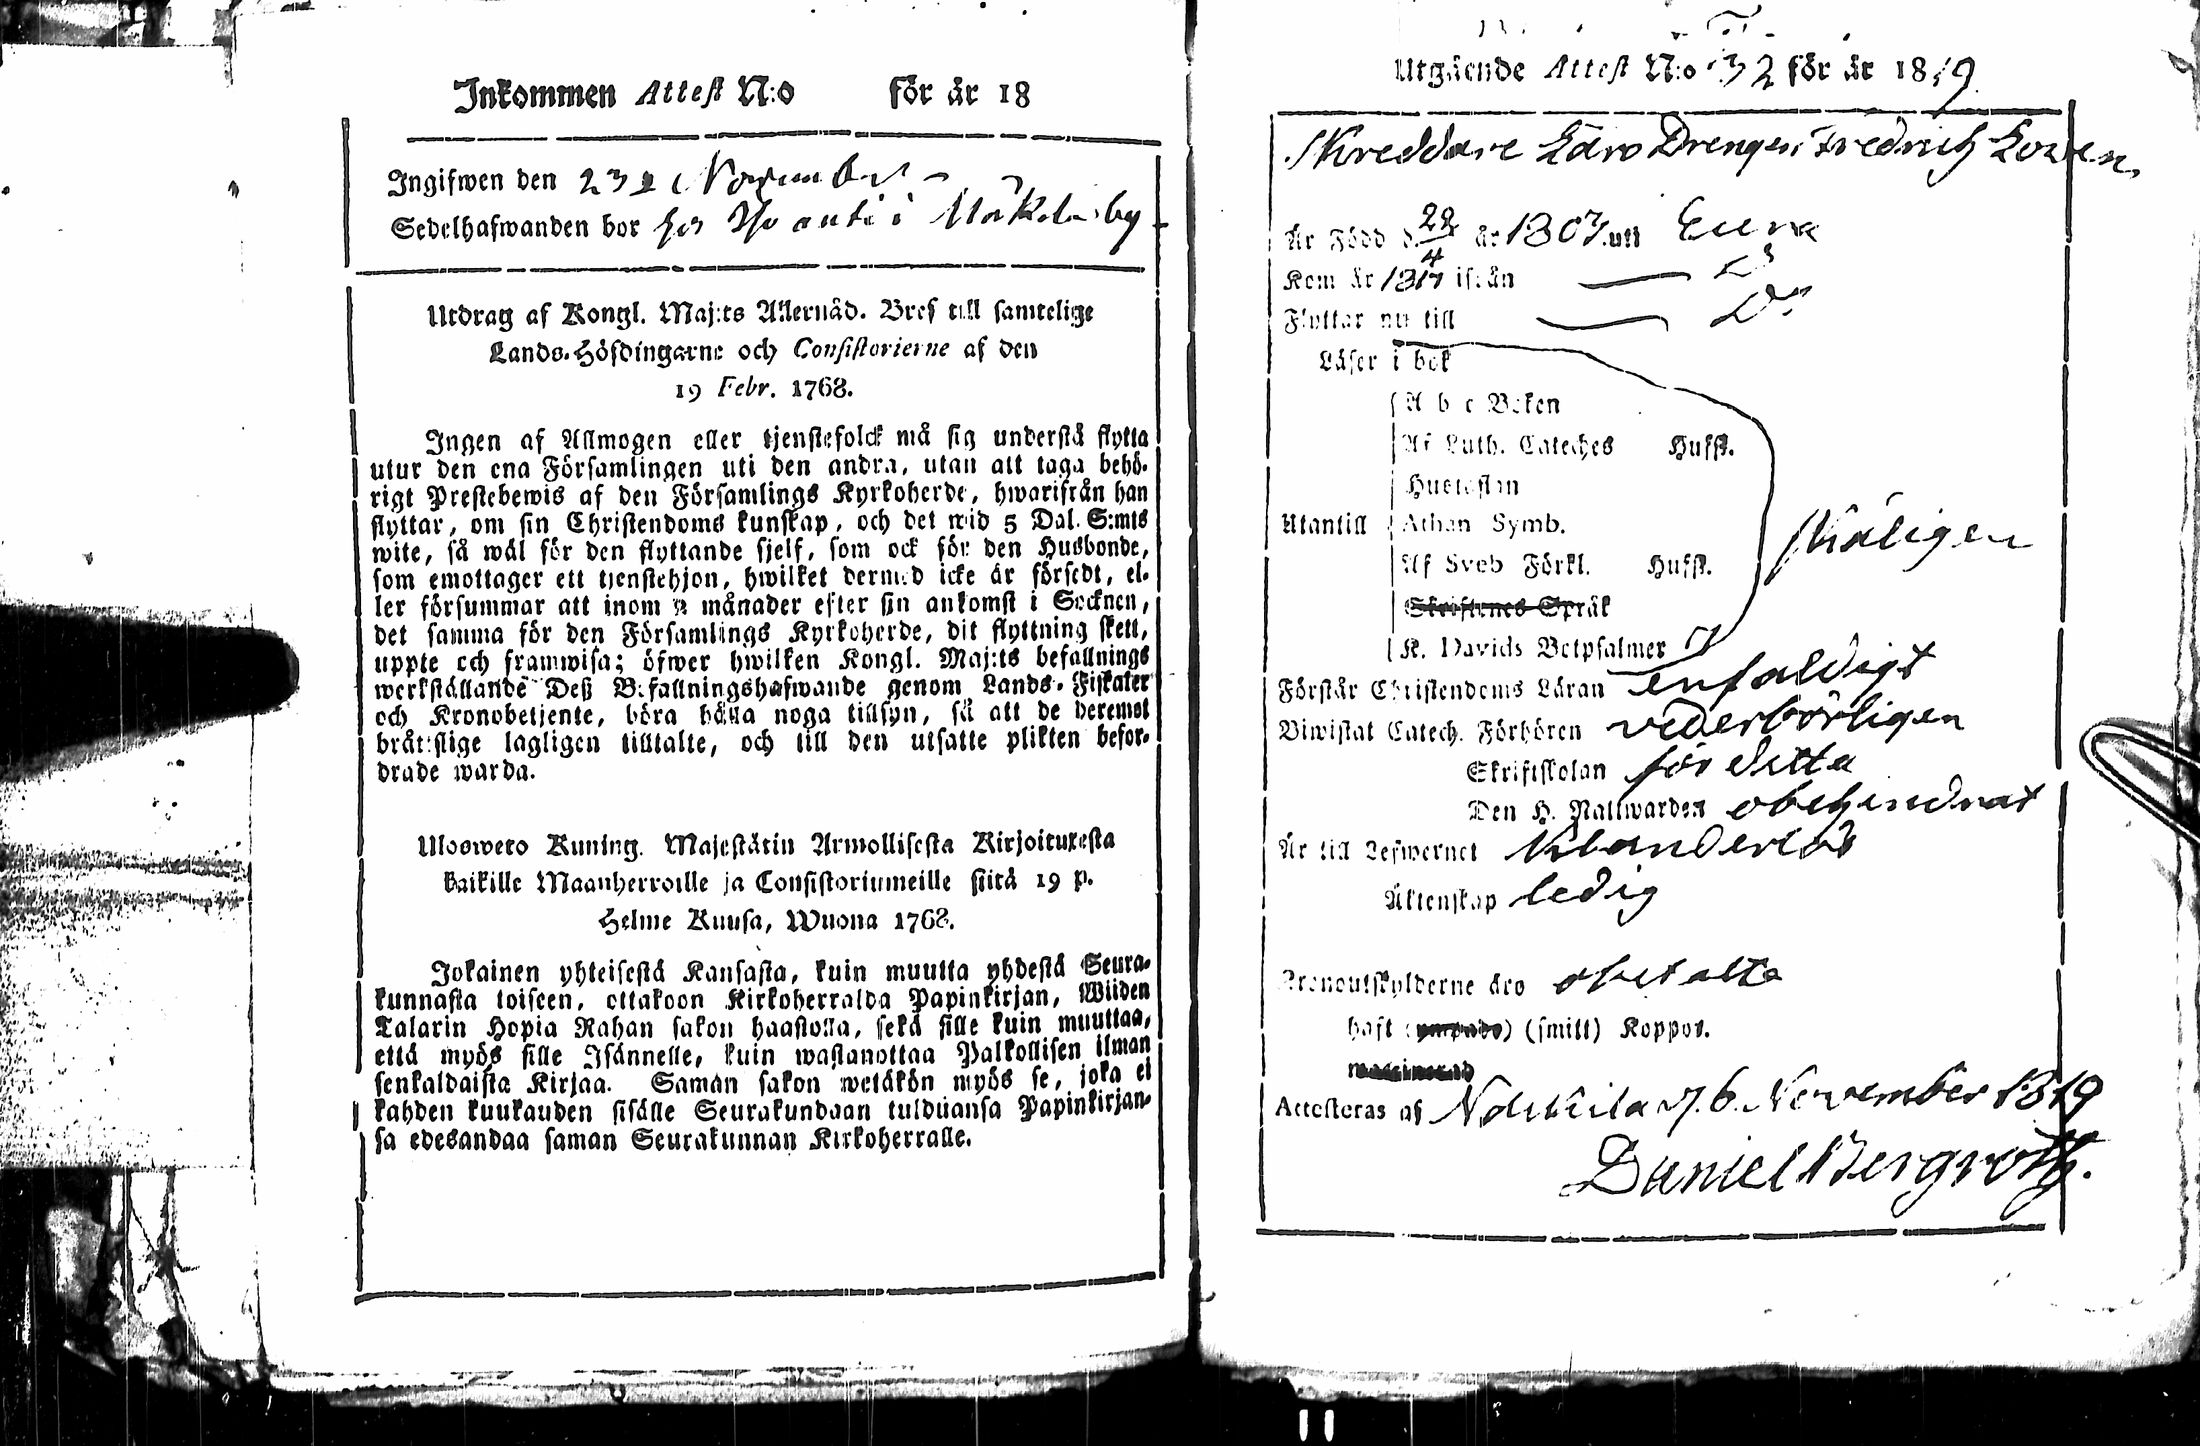 Inkommen Attest N:o för år 18
Ingifwen den 23 November
Sedelhafwanden bor hos i by
Utdrag af Kongl. Maj:ts Allernåd. Bref till samtelige
Lands-Höfdingarne och Consistorierne af den
19 Febr. 1768.
Ingen af Allmogen eller tjenstefolck må sig understå flytta
utur den ena Församlingen uti den andra, utan att taga behö-
rigt Prestebewis af den Församlings Kyrkoherde, hwarifrån han
flyttar, om sin Christendoms kunskap, och det wid 5 Dal. S:mts
wite, så wäl för den flyttande sjelf, som ock för den Husbonde,
som emottager ett tjenstehjon, hwilket dermed icke är försedt, el-
ler försummar att inom 2 månader efter sin ankomst i Socknen,
det samma för den Församlings Kyrkoherde, dit flyttning skett,
uppte och framwisa; öfwer hwilken Kongl. Maj:ts befallnings
werkställande Deß Befallningshafwande genom Lands-Fiskaler
och Kronobetjente, böra hålla noga tillsyn, så att de deremot
bråttslige lagligen tilltalte, och till den utsatte plikten befor-
drade warda.
Ulosweto Kuning. Majestätin Armollisesta Kirjoituxesta
kaikille Maanherroille ja Consistoriumeille siitä 19 p.
Helme Kuusa, Wuona 1768.
Jokainen yhteisestä Kansasta, kuin muutta yhdestä Seura-
kunnasta toiseen, ottakoon Kirkoherralda Papinkirjan, Wiiden
Talarin Hopia Rahan sakon haastolla, sekä sille kuin muuttaa,
että myös sille Isännelle, kuin wastanottaa Palkollisen ilman
senkaldaista Kirjaa. Saman sakon wetäkön myös se, joka ei
kahden kuukauden sisälle Seurakundaan tulduansa Papinkirjan-
sa edesandaa saman Seurakunnan Kirkoherralle.
Utgående Attest N:o 32 för år 1819.
Skreddare Läro Drengen Fredrich
Är Född d. 22/4 år 1807. uti Eura
Kom år 1817 ifrån — Do
Flyttar nu till — Do
Läser i bok
A b c Boken
Af Luth. Cateches Hufst.
Hustaflan
Utantill Athan Symb. skäligen
Af Sveb Förkl. Hufst.
Skriftenes Språk
K. Davids Botpsalmer
Förstår Christendoms Läran enfaldigt
Biwistat Catech. Förhören vederbörligen
Skriftskolan för detta
Den H. Nattwarden obehindrat
Är till Lefwernet klanderlös
Äktenskap ledig
Kronoutskylderne äro obetalte
haft (ympade) (smitt) Koppor.
waccinerad
Attesteras af Nousikila d. 6. November 1819
Daniel Bergroth.